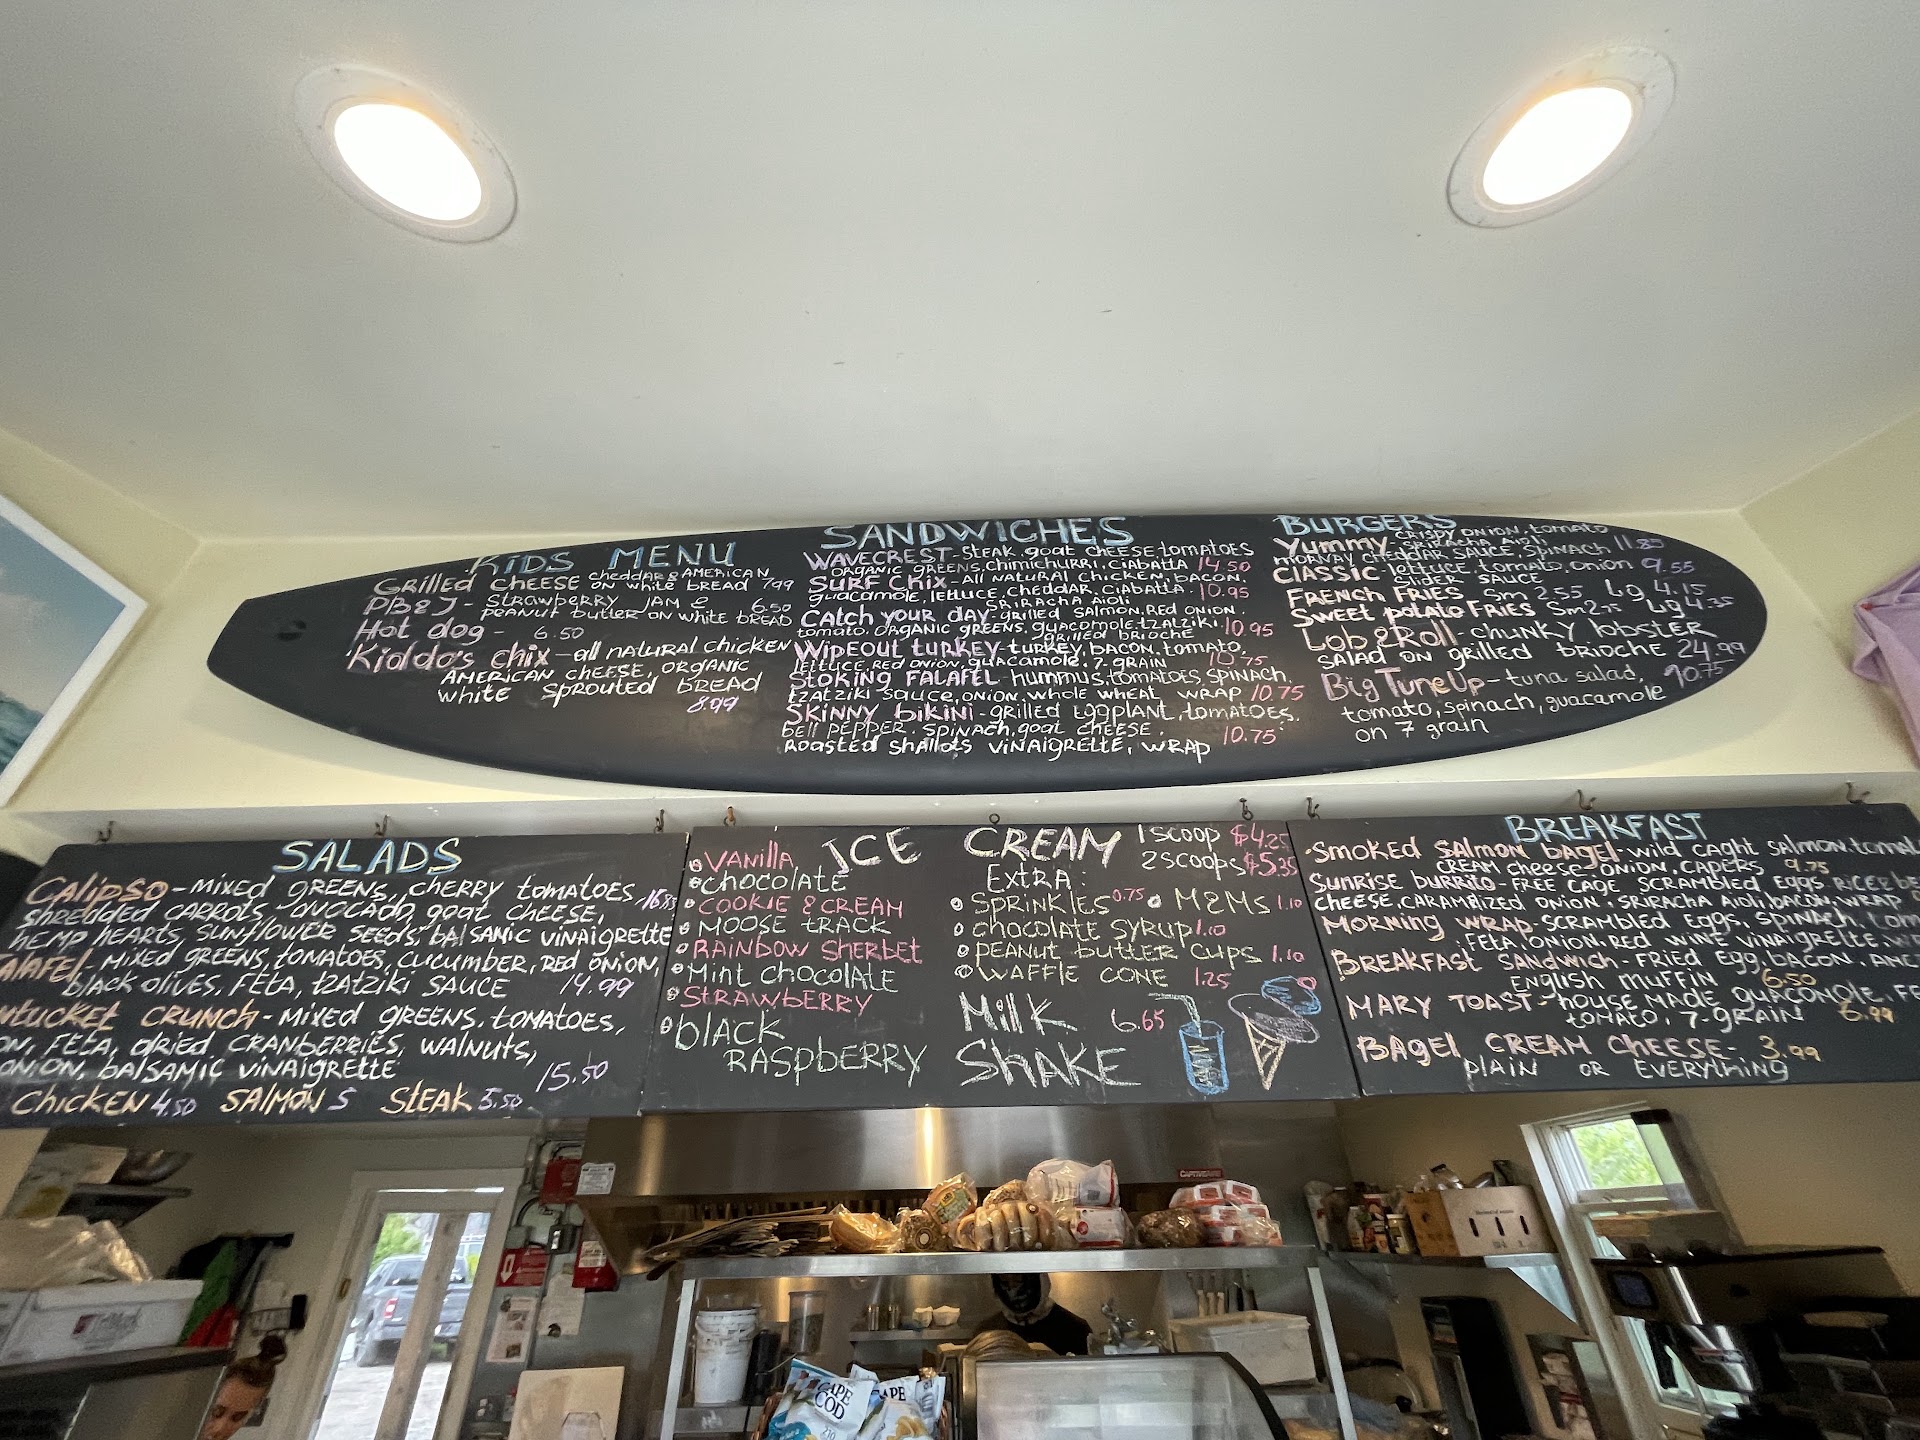 KIDS MENU
Grilled cheese cheddar & American
on white bread 7.99
PB&J - Strawberry jam &
peanut butter on white bread 6.50
Hot dog - 6.50
Kiddo's chix - all natural chicken
American cheese, organic
white sprouted bread
8.99
SANDWICHES
WAVECREST - steak, goat cheese, tomatoes
organic greens, chimichurri, ciabatta 14.50
Surf Chix - All natural chicken, bacon,
guacamole, lettuce, cheddar, ciabatta. 10.95
Sriracha aioli
Catch your day - grilled salmon, red onion,
tomato, organic greens, guacamole, tzatziki. 10.95
grilled brioche
Wipeout turkey - turkey, bacon, tomato,
lettuce, red onion, guacamole, 7-grain 10.75
Stoking falafel - hummus, tomatoes, spinach,
tzatziki sauce, onion, whole wheat wrap 10.75
Skinny bikini - grilled eggplant, tomatoes,
bell pepper, spinach, goat cheese, 10.75
Roasted shallots vinaigrette, wrap
BURGERS
Yummy - crispy onion, tomato
sriracha aioli
mornay cheddar sauce, spinach 11.85
Classic - lettuce, tomato, onion 9.55
slider sauce
French fries Sm 2.55 Lg 4.15
Sweet potato fries Sm Lg 4.35
Lob & Roll - chunky lobster
salad on grilled brioche 24.99
Big Tune Up - tuna salad, 10.75
tomato, spinach, guacamole
on 7 grain
SALADS
Calipso - mixed greens, cherry tomatoes,
shredded carrots, avocado, goat cheese,
hemp hearts, sunflower seeds, balsamic vinaigrette
alafel - mixed greens, tomatoes, cucumber, red onion,
black olives, feta, tzatziki sauce 14.99
ntucket crunch - mixed greens, tomatoes,
on, feta, dried cranberries, walnuts,
onion, balsamic vinaigrette 15.50
Chicken 4.50 Salmon 5 Steak 5.50
ICE CREAM 1 scoop $4.25
2 scoops $5.35
Vanilla
chocolate
cookie & cream
moose track
Rainbow sherbet
Mint chocolate
Strawberry
black
raspberry
Extra:
Sprinkles 0.75 M&Ms 1.10
chocolate syrup 1.10
peanut butter cups 1.10
Waffle cone 1.25
Milk 6.65
Shake
BREAKFAST
Smoked salmon bagel - wild caght salmon, tomat
cream cheese, onion, capers 9.75
Sunrise burrito - free cage scrambled eggs, rice & be
cheese, caramelized onion, sriracha aioli, bacon, wrap
Morning wrap - scrambled eggs, spinach, tom
feta, onion, red wine vinaigrette, wr
Breakfast sandwich - fried egg, bacon, ame
English muffin 6.50
Mary toast - house made guacomole, fe
tomato, 7-grain 6.99
Bagel cream cheese - 3.99
plain or everything
CAPE
COD
CAPE